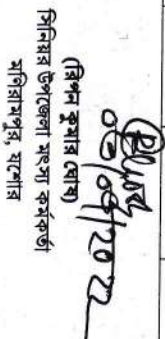 ০৩/০৪/২০২২
(রিপন কুমার ঘোষ)
সিনিয়র উপজেলা মৎস্য কর্মকর্তা
মনিরামপুর, যশোর